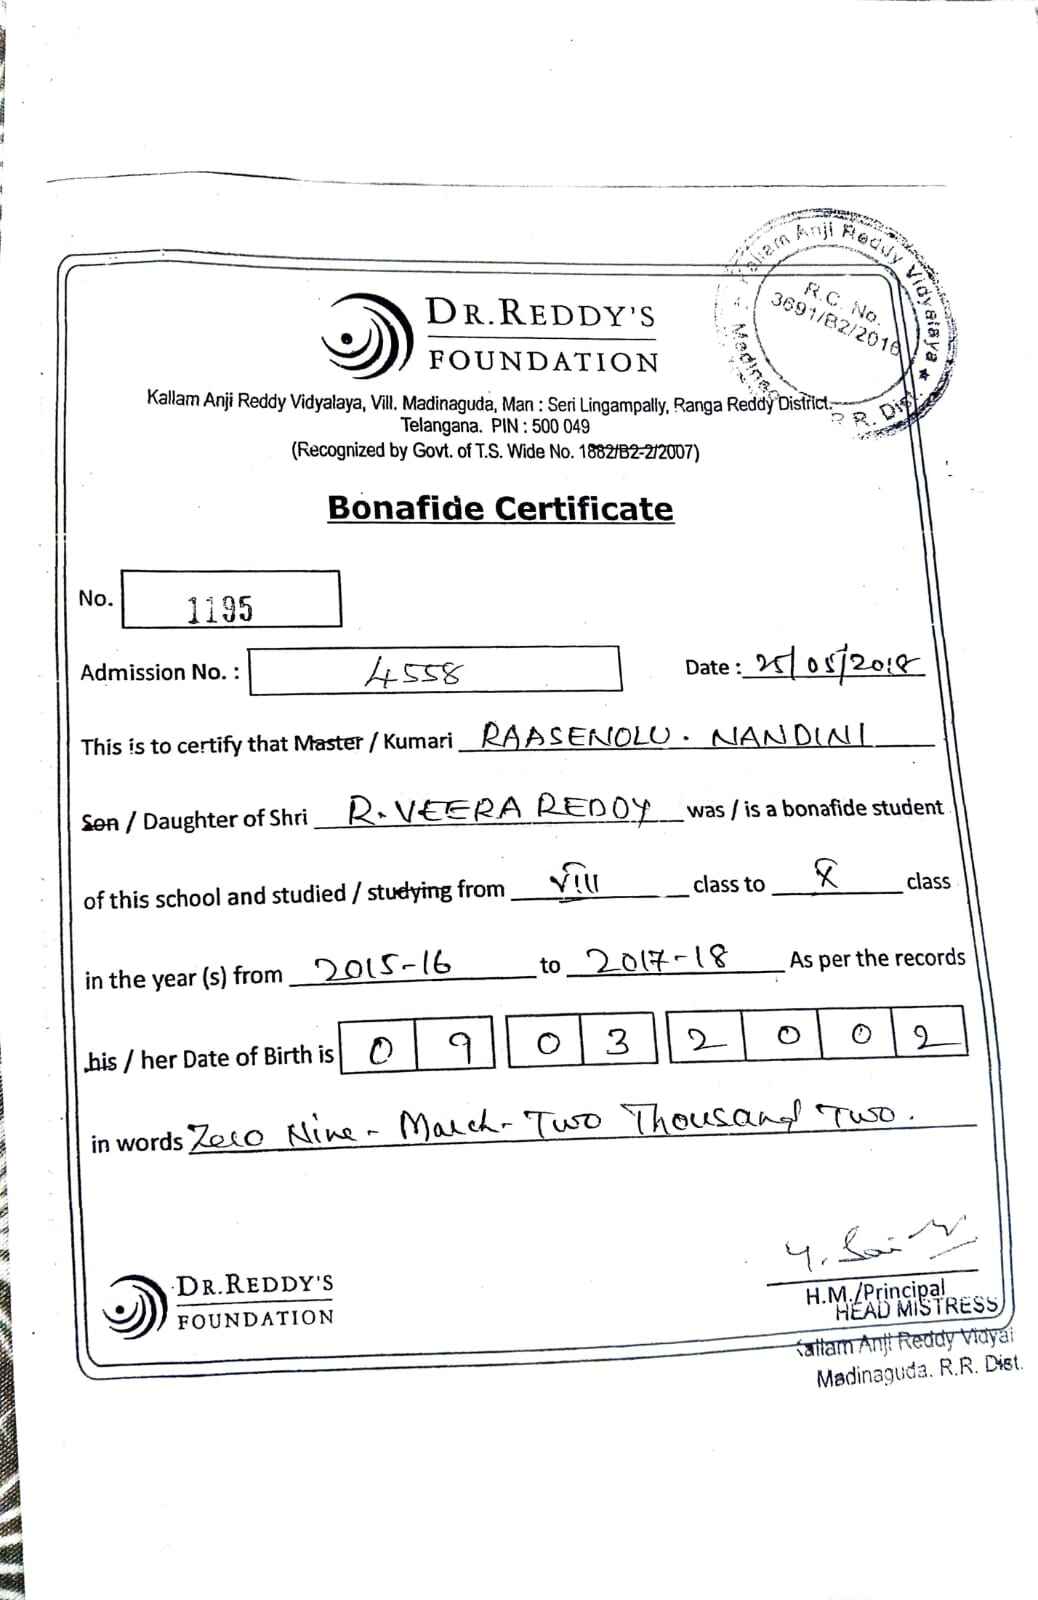 Kallam Anji Reddy Vidyalaya ★
R.C. No.
3691/B2/2016
R.R. Dist.
DR.REDDY'S
FOUNDATION
Kallam Anji Reddy Vidyalaya, Vill. Madinaguda, Man : Seri Lingampally, Ranga Reddy District.
Telangana. PIN : 500 049
(Recognized by Govt. of T.S. Wide No. 1882/B2-2/2007)
Bonafide Certificate
No. 1195
Admission No. : 4558 Date : 25/05/2018
This is to certify that Master / Kumari RAASENOLU . NANDINI
Son / Daughter of Shri R. VEERA REDDY was / is a bonafide student
of this school and studied / studying from VIII class to X class
in the year (s) from 2015-16 to 2017-18 As per the records
his / her Date of Birth is 0 9 0 3 2 0 0 2
in words Zero Nine - March - Two Thousand Two.
DR.REDDY'S
FOUNDATION
H.M./Principal
HEAD MISTRESS
Kallam Anji Reddy Vidyal
Madinaguda. R.R. Dist.